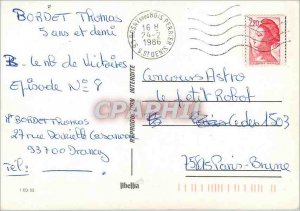 BORDET Thomas
5 ans et demi
B. Lerb de Victoires
Episode N° 8
BORDET THOMAS
27 rue Danielle Casanova
93700 Drancy
Tel:
REPRODUCTION INTERDITE
libellia
16 H
24-2
1986
2,20
Concours Astro
le Petit Robot
Paris Cedex 1503
75015 Paris-Brune
CARTAPHILIA